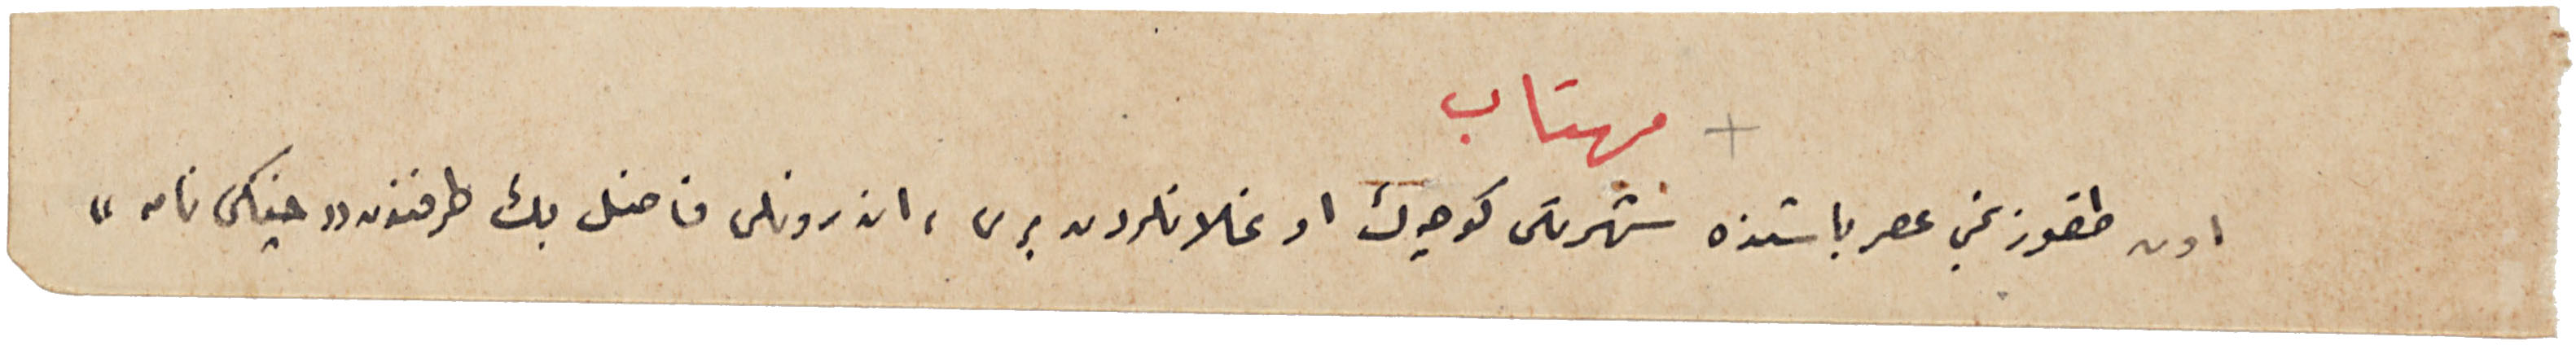 مهتاب
اون طقوزنجی عصر باشنده شهرتلی كوچك اوغلانلردن بری ، اندرونلی فاضل بك طرفندن «چنگی نامه»